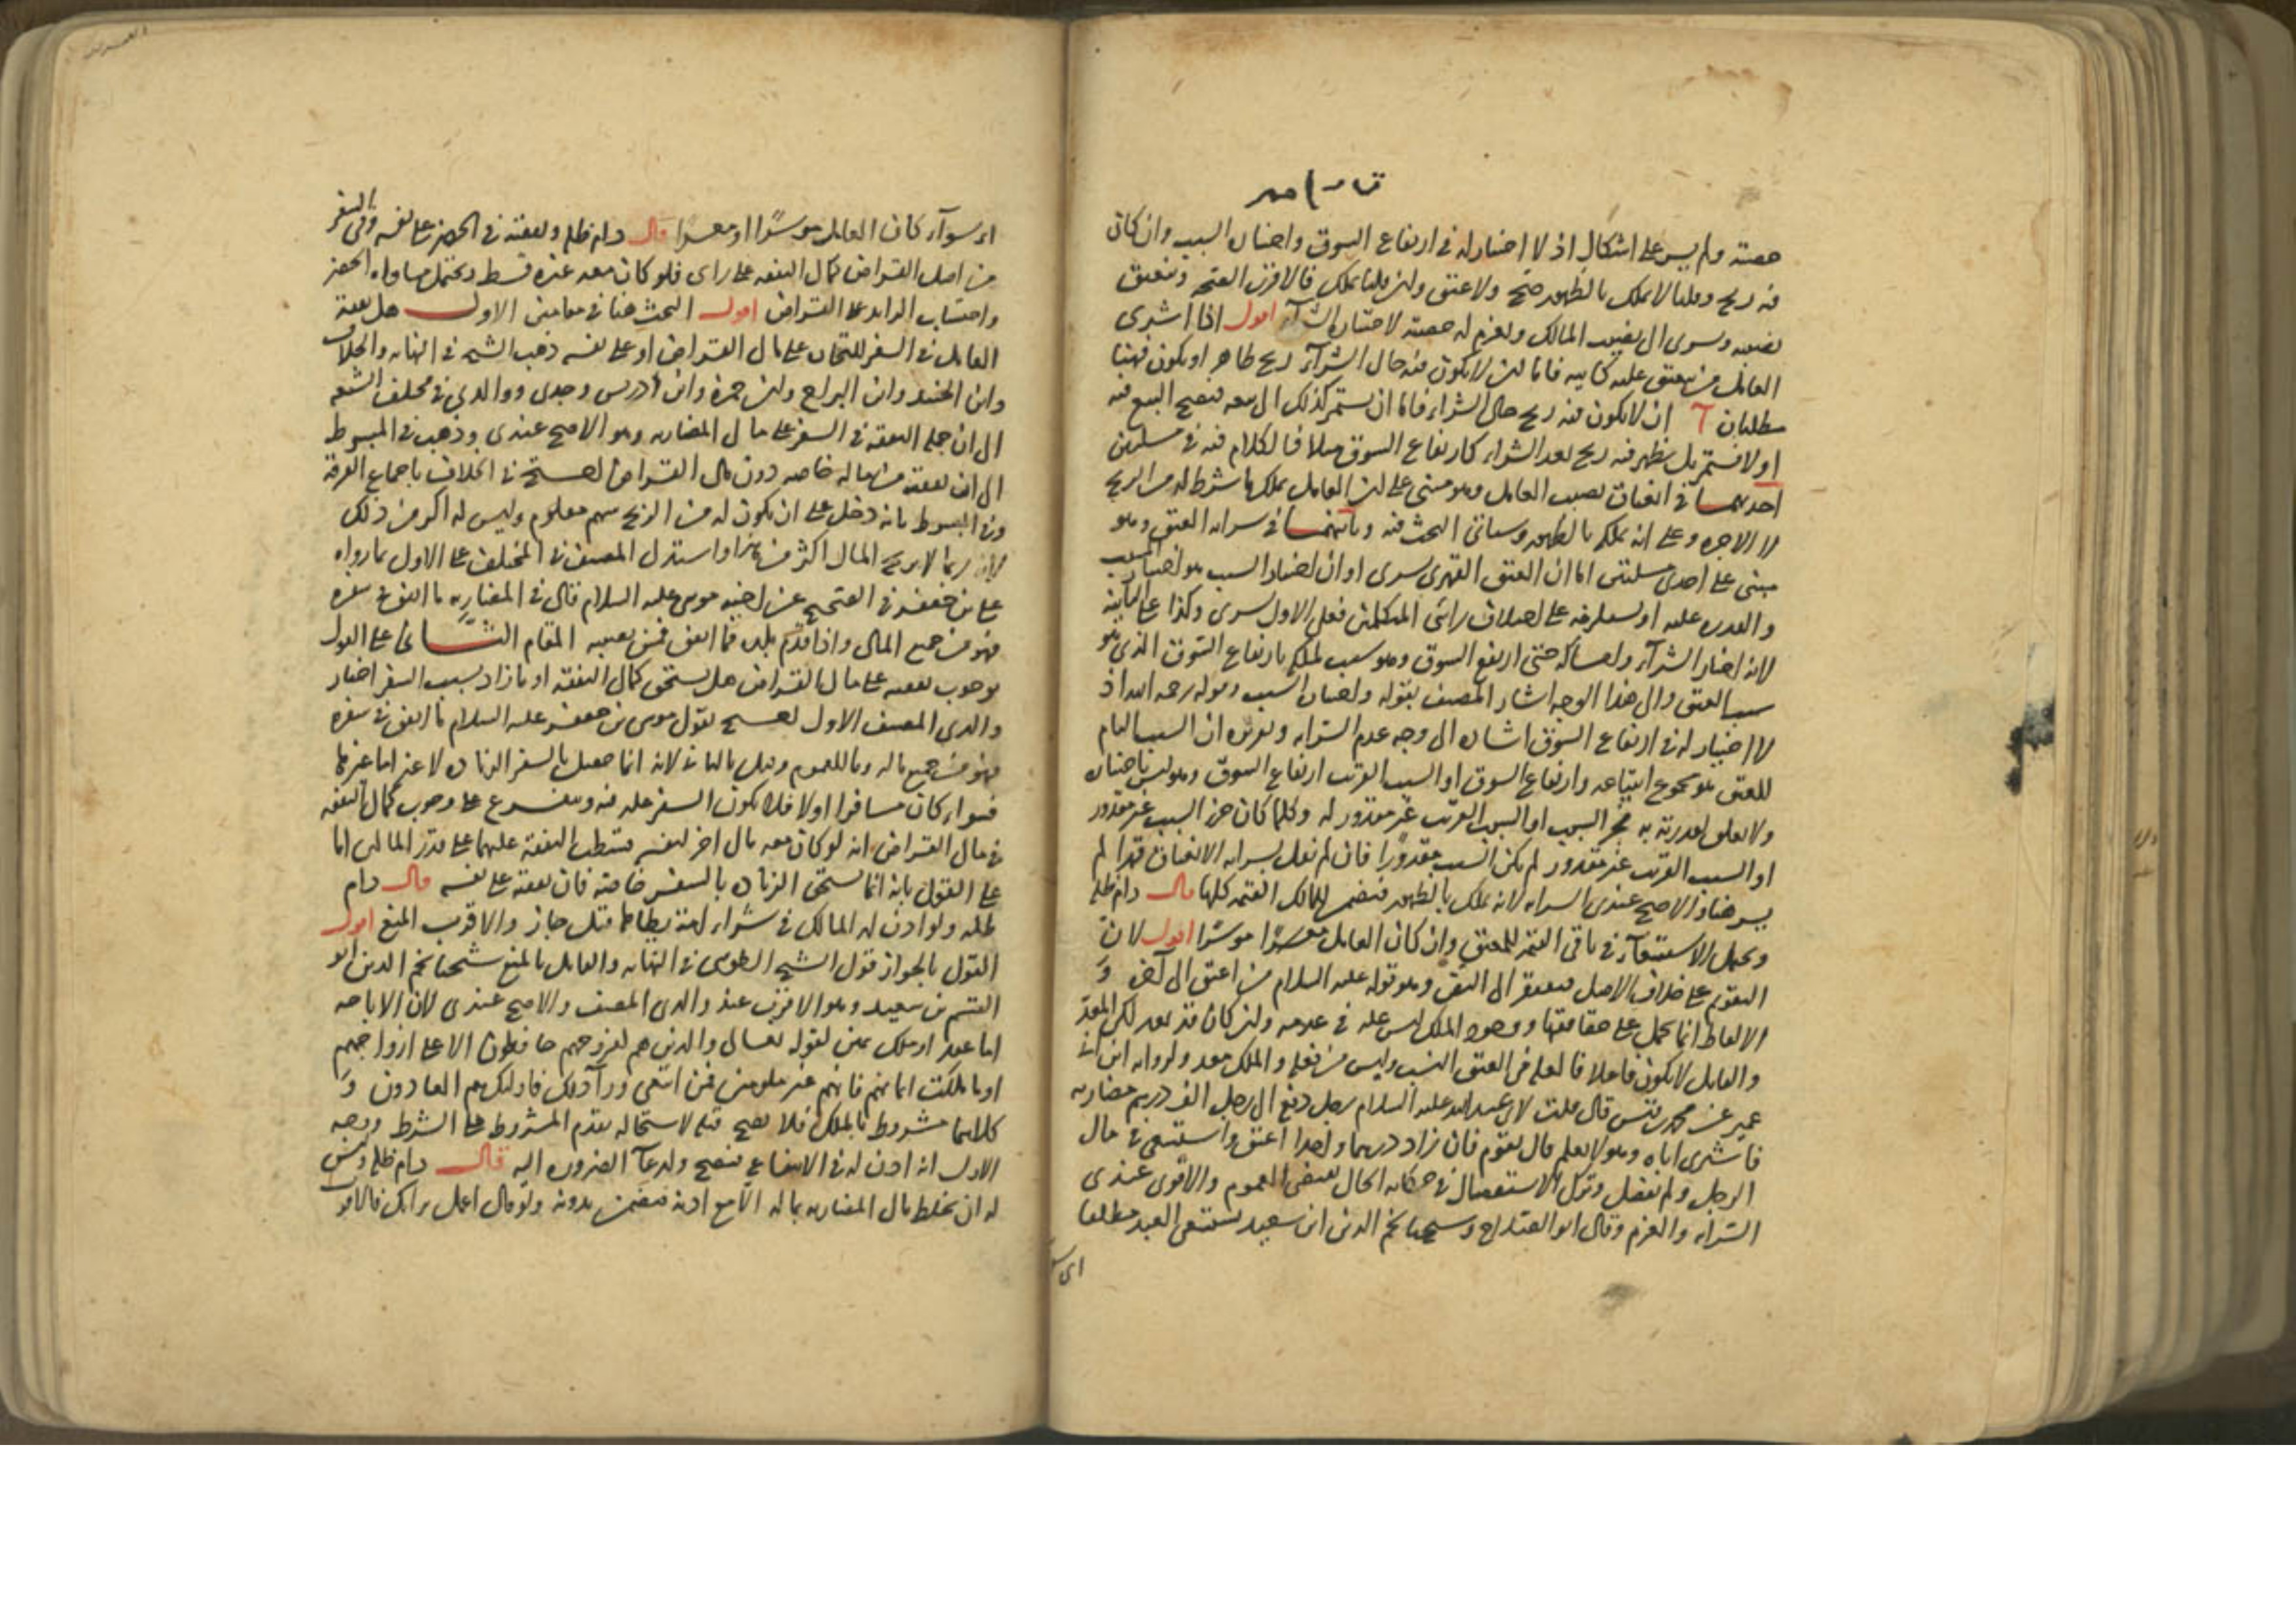 حصته ولم يسر على اشكال اذ لا اختيار له في ارتفاع السوق واختيار السبب وان كان
فيه ربح وقلنا لا يملك بالظهور صح ولا عتق وان قلنا يملك فالاقرب الصحة وينعتق
نصيبه ويسرى الى نصيب المالك ويغرم له حصته لاختياره الشرآء اقول اذا اشترى
العامل من ينعتق عليه كابيه فاما ان لا يكون فيه حال الشرآء ربح ظاهر او يكون فهنا
مطلبان آ ان لا يكون فيه ربح حال الشراء فاما ان يستمر كذلك الى بيعه فيصح البيع فيه
او لا يستمر بل يظهر فيه ربح بعد الشراء كارتفاع السوق مثلا فالكلام فيه في مسئلتين
احديهما في انعتاق نصيب العامل وهو مبنى على ان العامل يملك ما شرط له من الربح
لا الاجرة وعلى انه يملكه بالظهور وسياتى البحث فيه وثانيتهما في سراية العتق وهو
مبنى على احدى مسئلتين اما ان العتق القهرى يسرى او ان اختيار السبب هو اختيار المسبب
والقدرة عليه او
لانه اختار الشرآء وامساكه حتى ارتفع السوق وهو سبب لملكه بارتفاع السوق الذى هو
سبب العتق والى هذا الوجه اشار المصنف بقوله واختيار السبب وقوله رحمه الله اذ
لا اختيار له في ارتفاع السوق اشارة الى وجه عدم السراية وتقريره ان السبب التام
للعتق هو مجموع ابتياعه وارتفاع السوق او السبب القريب ارتفاع السوق وهو ليس باختياره
ولا تعلق لقدرته به فجزء السبب او السبب القريب غير مقدور له وكلما كان جزء السبب غير مقدور
او السبب القريب غير مقدور لم يكن السبب مقدورا فان لم نقل بسراية الانعتاق قهرا لم
يسر هنا والاصح عندى السراية لانه يملك بالظهور فيضمن للمالك القيمة كلها قال دام ظله
ويحتمل الاستسعآء في باقى القيمة للمعتق وان كان العامل موسرا اقول لان
التقويم على خلاف الاصل فيفتقر الى النص وهو قوله عليه السلام من اعتق الى آخره و
الالفاظ انما تحمل على حقائقها
والعامل لا يكون فاعلا
عمير عن محمد بن قيس قال قلت لابى عبد الله عليه السلام رجل دفع الى رجل الف درهم مضاربة
فاشترى اباه وهو لا يعلم قال يقوم فان زاد درهما واحدا اعتق واستسعى في مال
الرجل ولم يفصل وترك الاستفصال في حكاية الحال يقتضى العموم والاقوى عندى
السراية والغرم وقال ابو الصلاح وشيخنا نجم الدين ابن سعيد يستسعى العبد مطلقا
اى سو
اى سوآء كان العامل موسرا او معسرا قال دام ظله ونفقته في الحضر على نفسه وفي السفر
من اصل القراض كمال النفقة على راى فلو كان معه غيره قسط ويحتمل مساواة الحضر
واحتساب الزايد على القراض اقول البحث هنا في مقامين الاول هل نفقة
العامل في السفر للتجارة على مال القراض او على نفسه ذهب الشيخ في النهاية والخلاف
وابن الجنيد وابن البراج وابن حمزة وابن ادريس وجدى ووالدى في مختلف الشيعة
الى ان جملة النفقة في السفر على مال المضاربة وهو الاصح عندى وذهب في المبسوط
الى ان نفقته من ماله خاصة دون مال القراض احتج في الخلاف باجماع الفرقة
وفي المبسوط بانه دخل على ان يكون له من الربح سهم معلوم وليس له اكثر من ذلك
لانه ربما لا يربح المال اكثر من هذا واستدل المصنف في المختلف على الاول بما رواه
على بن جعفر في الصحيح عن اخيه موسى عليه السلام قال في المضاربة ما انفق في سفره
فهو من جميع المال واذا قدم بلده فما انفق فمن نصيبه المقام الثانى على القول
بوجوب نفقته على مال القراض هل يستحق كمال النفقة او ما زاد بسبب السفر اختار
والدى المصنف الاول احتج بقول موسى بن جعفر عليه السلام ما انفق في سفره
فهو من جميع ماله وما للعموم وقيل بالثانى لانه انما حصل بالسفر الزيادة لا غير اما غيرها
فسواء كان مسافرا او لا فلا يكون السفر علة فيه ويتفرع على وجوب كمال النفقة
في مال القراض انه لو كان معه مال اخر لنفسه قسطت النفقة عليهما على قدر المالين اما
على القول بانه انما يستحق الزيادة بالسفر خاصة فان نفقته على نفسه قال دام
ظله ولو اذن له المالك في شراء امة يطاها قيل جاز والاقرب المنع اقول
القول بالجواز قول الشيخ الطوسى في النهاية والقايل بالمنع شيخنا نجم الدين ابو
القسم بن سعيد وهو الاقرب عند والدى المصنف والاصح عندى لان الاباحة
اما عقد او ملك يمين لقوله تعالى والذين هم لفروجهم حافظون الا على ازواجهم
او ما ملكت ايمانهم فانهم غير ملومين فمن ابتغى ورآء ذلك فاولئك هم العادون و
كلاهما مشروط بالملك فلا يصح قبله لاستحالة تقدم المشروط على الشرط ووجه
الاول انه اذن له في الانتفاع فيصح ولدعآء الضرورة اليه قال دام ظله وليس
له ان يخلط مال المضاربة بماله الا مع اذنه فيضمن بدونه ولو قال اعمل برايك فالاقرب